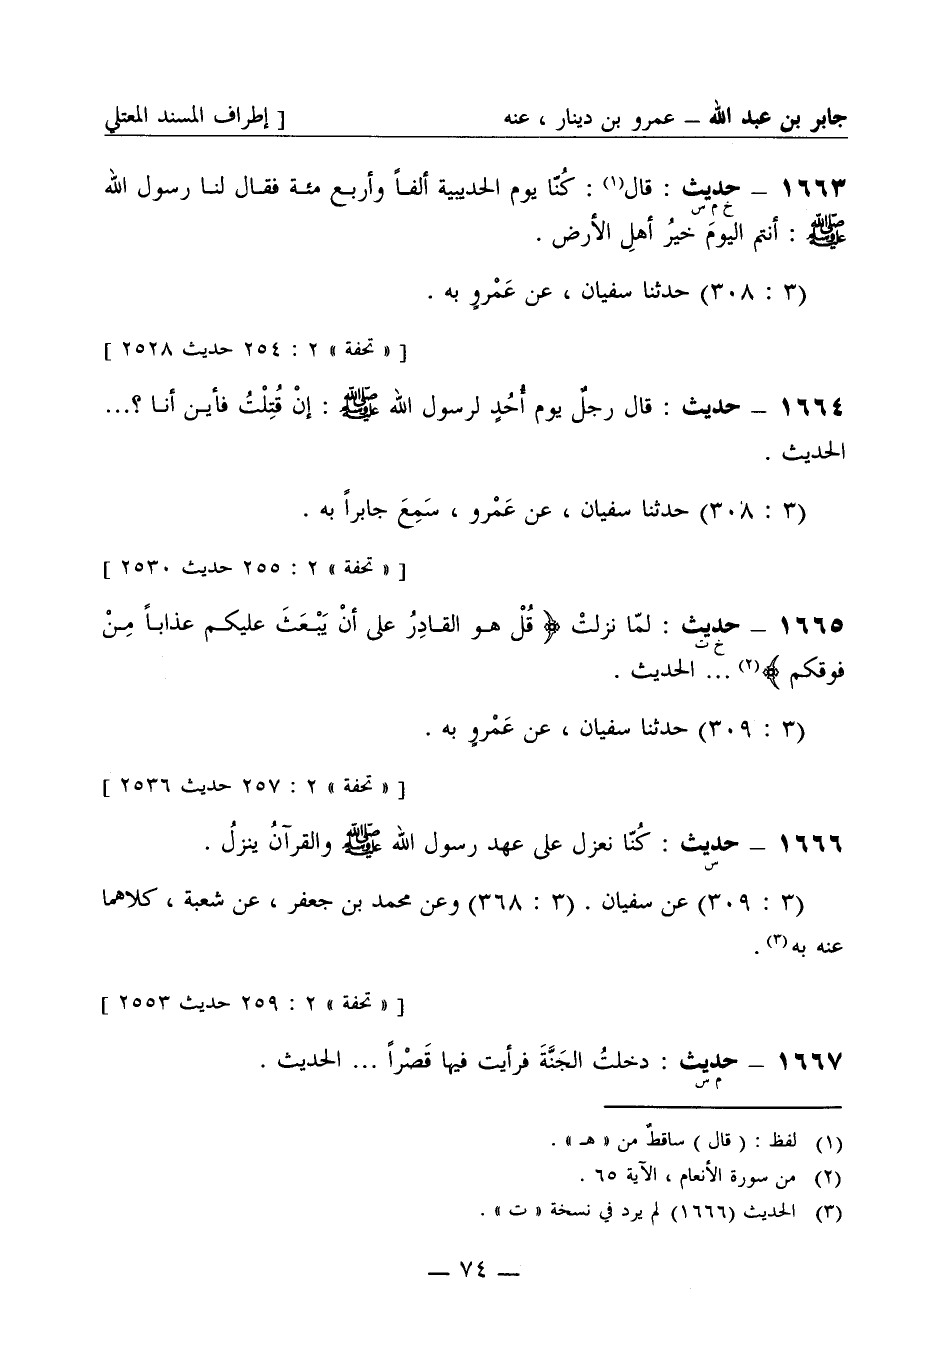 جابر بن عبد الله – عمرو بن دينار ، عنه [ إطراف المسند المعتلي
١٦٦٣ – حديث : قال(١) : كُنّا يوم الحديبية ألفاً وأربع مئة فقال لنا رسول الله
خ م س
ﷺ : أنتم اليومَ خيرُ أهلِ الأرض .
(٣ : ٣٠٨) حدثنا سفيان ، عن عَمْروٍ به .
[ « تحفة » ٢ : ٢٥٤ حديث ٢٥٢٨ ]
١٦٦٤ – حديث : قال رجلٌ يوم أُحُدٍ لرسول الله ﷺ : إنْ قُتِلْتُ فأين أنا ؟...
الحديث .
(٣ : ٣٠٨) حدثنا سفيان ، عن عَمْرو ، سَمِعَ جابراً به .
[ « تحفة » ٢ : ٢٥٥ حديث ٢٥٣٠ ]
١٦٦٥ – حديث : لمّا نزلتْ ﴿ قُلْ هو القادِرُ على أنْ يَبْعَثَ عليكم عذاباً مِنْ
خ ت
فوقكم ﴾(٢) ... الحديث .
(٣ : ٣٠٩) حدثنا سفيان ، عن عَمْروٍ به .
[ « تحفة » ٢ : ٢٥٧ حديث ٢٥٣٦ ]
١٦٦٦ – حديث : كُنّا نعزل على عهد رسول الله ﷺ والقرآنُ ينزلُ .
س
(٣ : ٣٠٩) عن سفيان . (٣ : ٣٦٨) وعن محمد بن جعفر ، عن شعبة ، كلاهما
عنه به(٣) .
[ « تحفة » ٢ : ٢٥٩ حديث ٢٥٥٣ ]
١٦٦٧ – حديث : دخلتُ الجَنَّةَ فرأيت فيها قَصْراً ... الحديث .
م س
(١) لفظ : ( قال ) ساقطٌ من « هـ » .
(٢) من سورة الأنعام ، الآية ٦٥ .
(٣) الحديث (١٦٦٦) لم يرد في نسخة « ت » .
– ٧٤ –